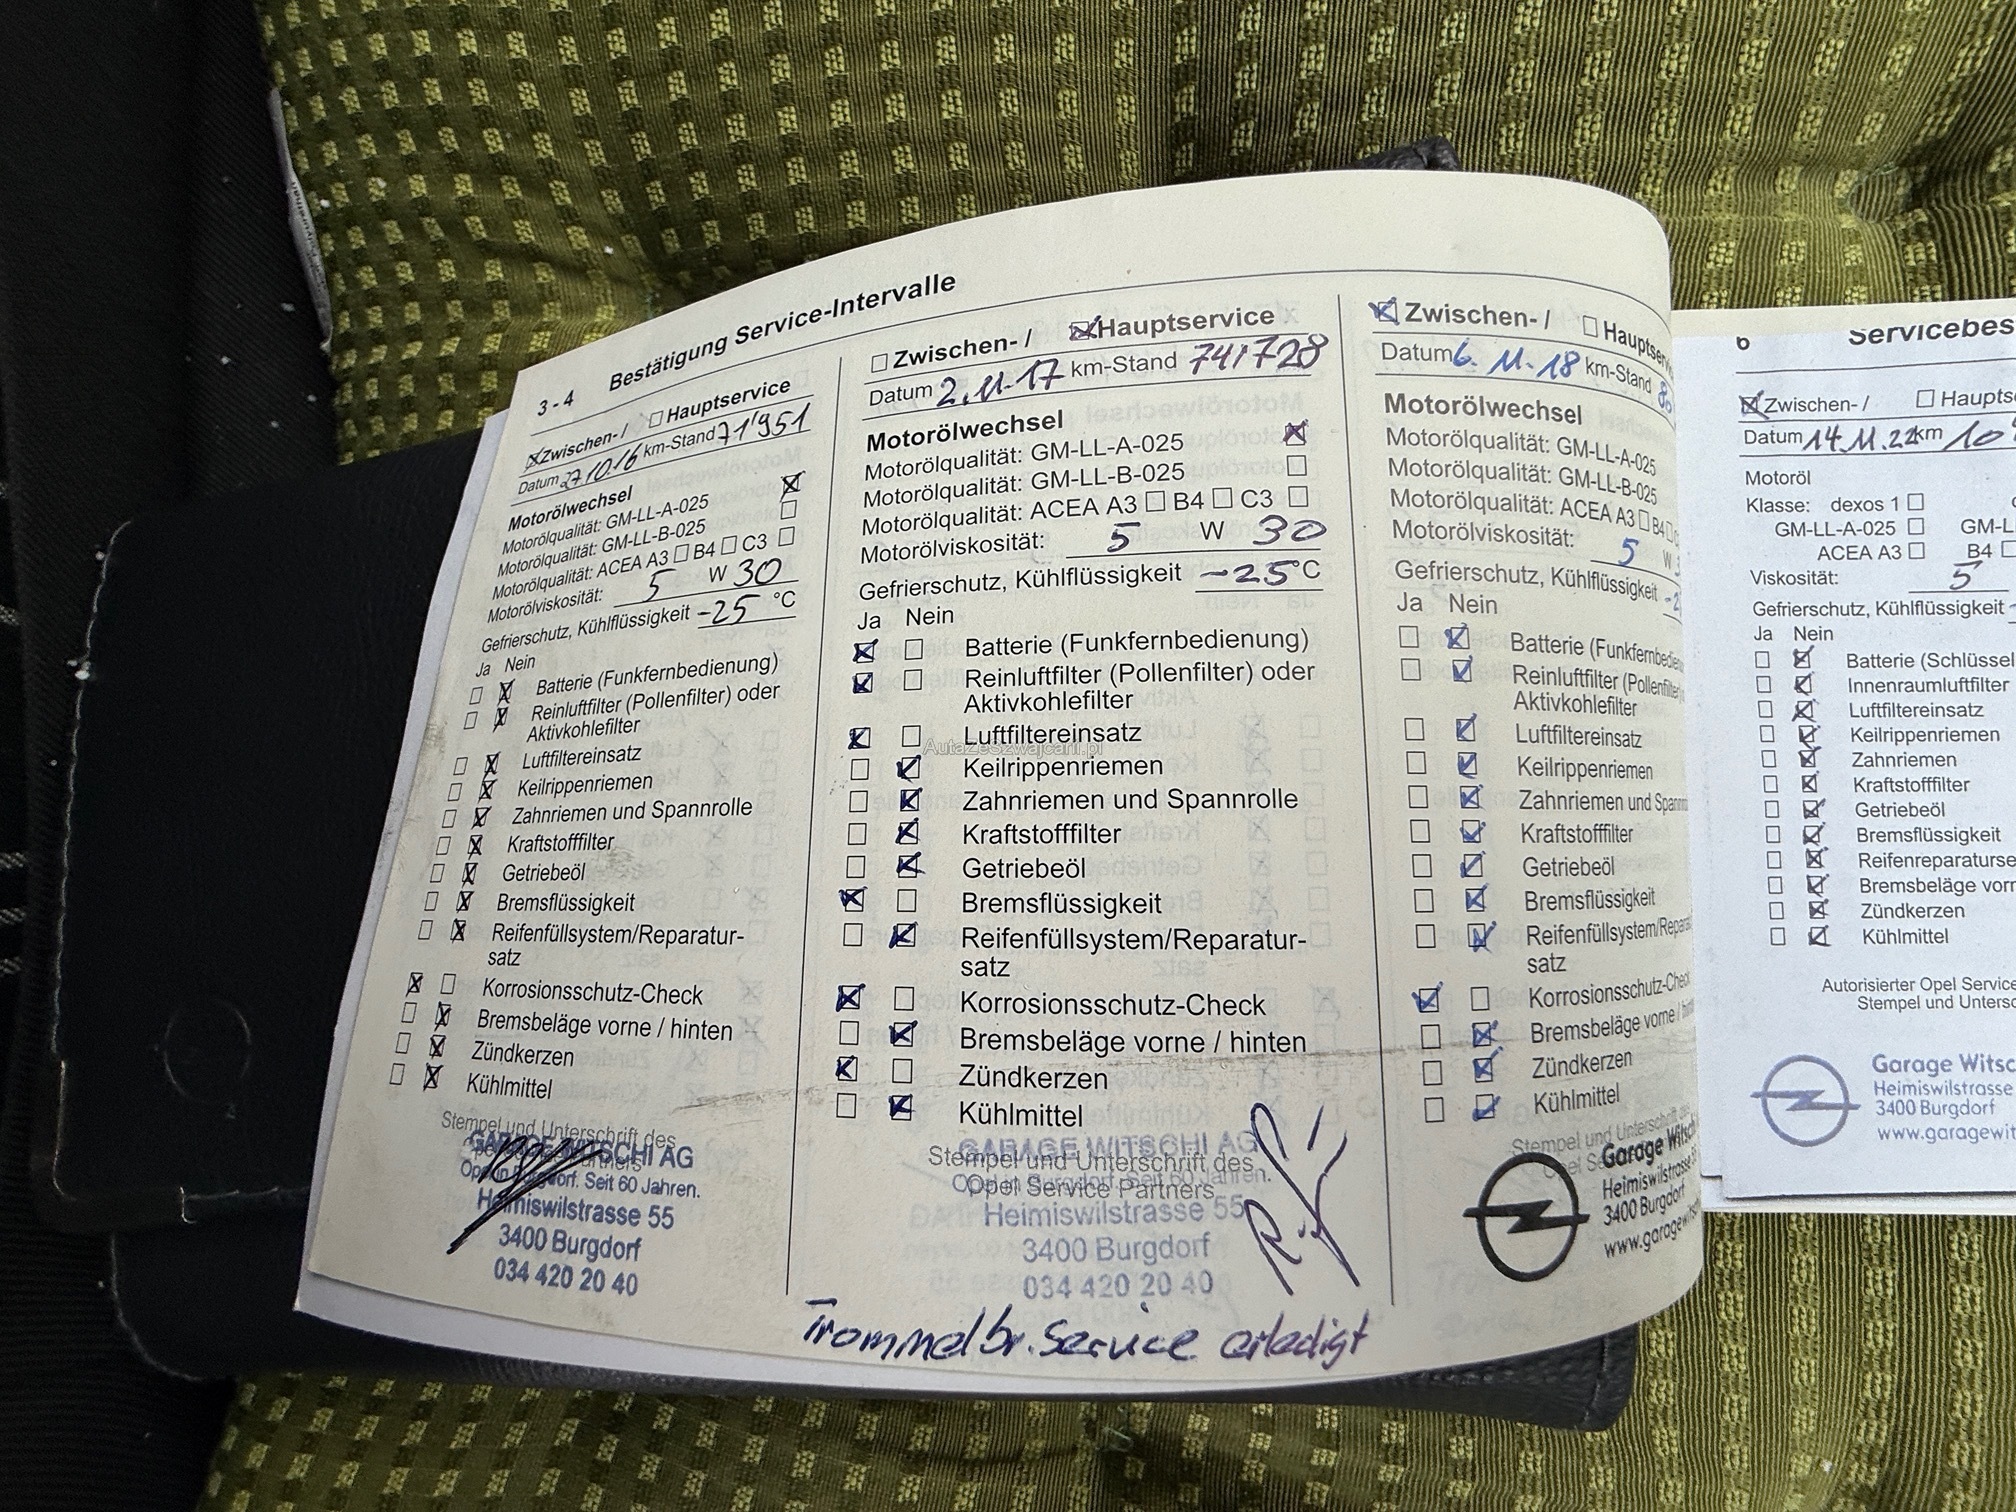 3 - 4 Bestätigung Service-Intervalle
Zwischen- / Hauptservice
Datum 27.10.16 km-Stand 71'951
Motorölwechsel
Motorölqualität: GM-LL-A-025
Motorölqualität: GM-LL-B-025
Motorölqualität: ACEA A3 B4 C3
Motorölviskosität: 5 W 30
Gefrierschutz, Kühlflüssigkeit -25 °C
Ja Nein
Batterie (Funkfernbedienung)
Reinluftfilter (Pollenfilter) oder
Aktivkohlefilter
Luftfiltereinsatz
Keilrippenriemen
Zahnriemen und Spannrolle
Kraftstofffilter
Getriebeöl
Bremsflüssigkeit
Reifenfüllsystem/Reparatur-
satz
Korrosionsschutz-Check
Bremsbeläge vorne / hinten
Zündkerzen
Kühlmittel
Stempel und Unterschrift des
GARAGE WITSCHI AG
Opel in Burgdorf. Seit 60 Jahren.
Heimiswilstrasse 55
3400 Burgdorf
034 420 20 40
Zwischen- / Hauptservice
Datum 2.11.17 km-Stand 741728
Motorölwechsel
Motorölqualität: GM-LL-A-025
Motorölqualität: GM-LL-B-025
Motorölqualität: ACEA A3 B4 C3
Motorölviskosität: 5 W 30
Gefrierschutz, Kühlflüssigkeit -25°C
Ja Nein
Batterie (Funkfernbedienung)
Reinluftfilter (Pollenfilter) oder
Aktivkohlefilter
Luftfiltereinsatz
AutazeSzwajcarii.pl
Keilrippenriemen
Zahnriemen und Spannrolle
Kraftstofffilter
Getriebeöl
Bremsflüssigkeit
Reifenfüllsystem/Reparatur-
satz
Korrosionsschutz-Check
Bremsbeläge vorne / hinten
Zündkerzen
Kühlmittel
GARAGE WITSCHI AG
Stempel und Unterschrift des
Opel in Burgdorf. Seit 60 Jahren.
Opel Service Partners
Heimiswilstrasse 55
3400 Burgdorf
034 420 20 40
Trommelbr. Service erledigt
Zwischen- / Hauptservice
Datum 6.11.18 km-Stand
Motorölwechsel
Motorölqualität: GM-LL-A-025
Motorölqualität: GM-LL-B-025
Motorölqualität: ACEA A3 B4
Motorölviskosität: 5 W
Gefrierschutz, Kühlflüssigkeit
Ja Nein
Batterie (Funkfernbedie
Reinluftfilter (Pollenfilter)
Aktivkohlefilter
Luftfiltereinsatz
Keilrippenriemen
Zahnriemen und Spannro
Kraftstofffilter
Getriebeöl
Bremsflüssigkeit
Reifenfüllsystem/Repara
satz
Korrosionsschutz-Check
Bremsbeläge vorne /
Zündkerzen
Kühlmittel
Stempel und Unterschrift des
Garage Witschi
Heimiswilstrasse
3400 Burgdorf
www.garagewits
6 Servicebes
Zwischen- / Hauptse
Datum 14.11.22 km
Motoröl
Klasse: dexos 1
GM-LL-A-025 GM-L
ACEA A3 B4
Viskosität: 5
Gefrierschutz, Kühlflüssigkeit
Ja Nein
Batterie (Schlüssel
Innenraumluftfilter
Luftfiltereinsatz
Keilrippenriemen
Zahnriemen
Kraftstofffilter
Getriebeöl
Bremsflüssigkeit
Reifenreparaturse
Bremsbeläge vorn
Zündkerzen
Kühlmittel
Autorisierter Opel Service
Stempel und Untersc
Garage Witsc
Heimiswilstrasse
3400 Burgdorf
www.garagewit